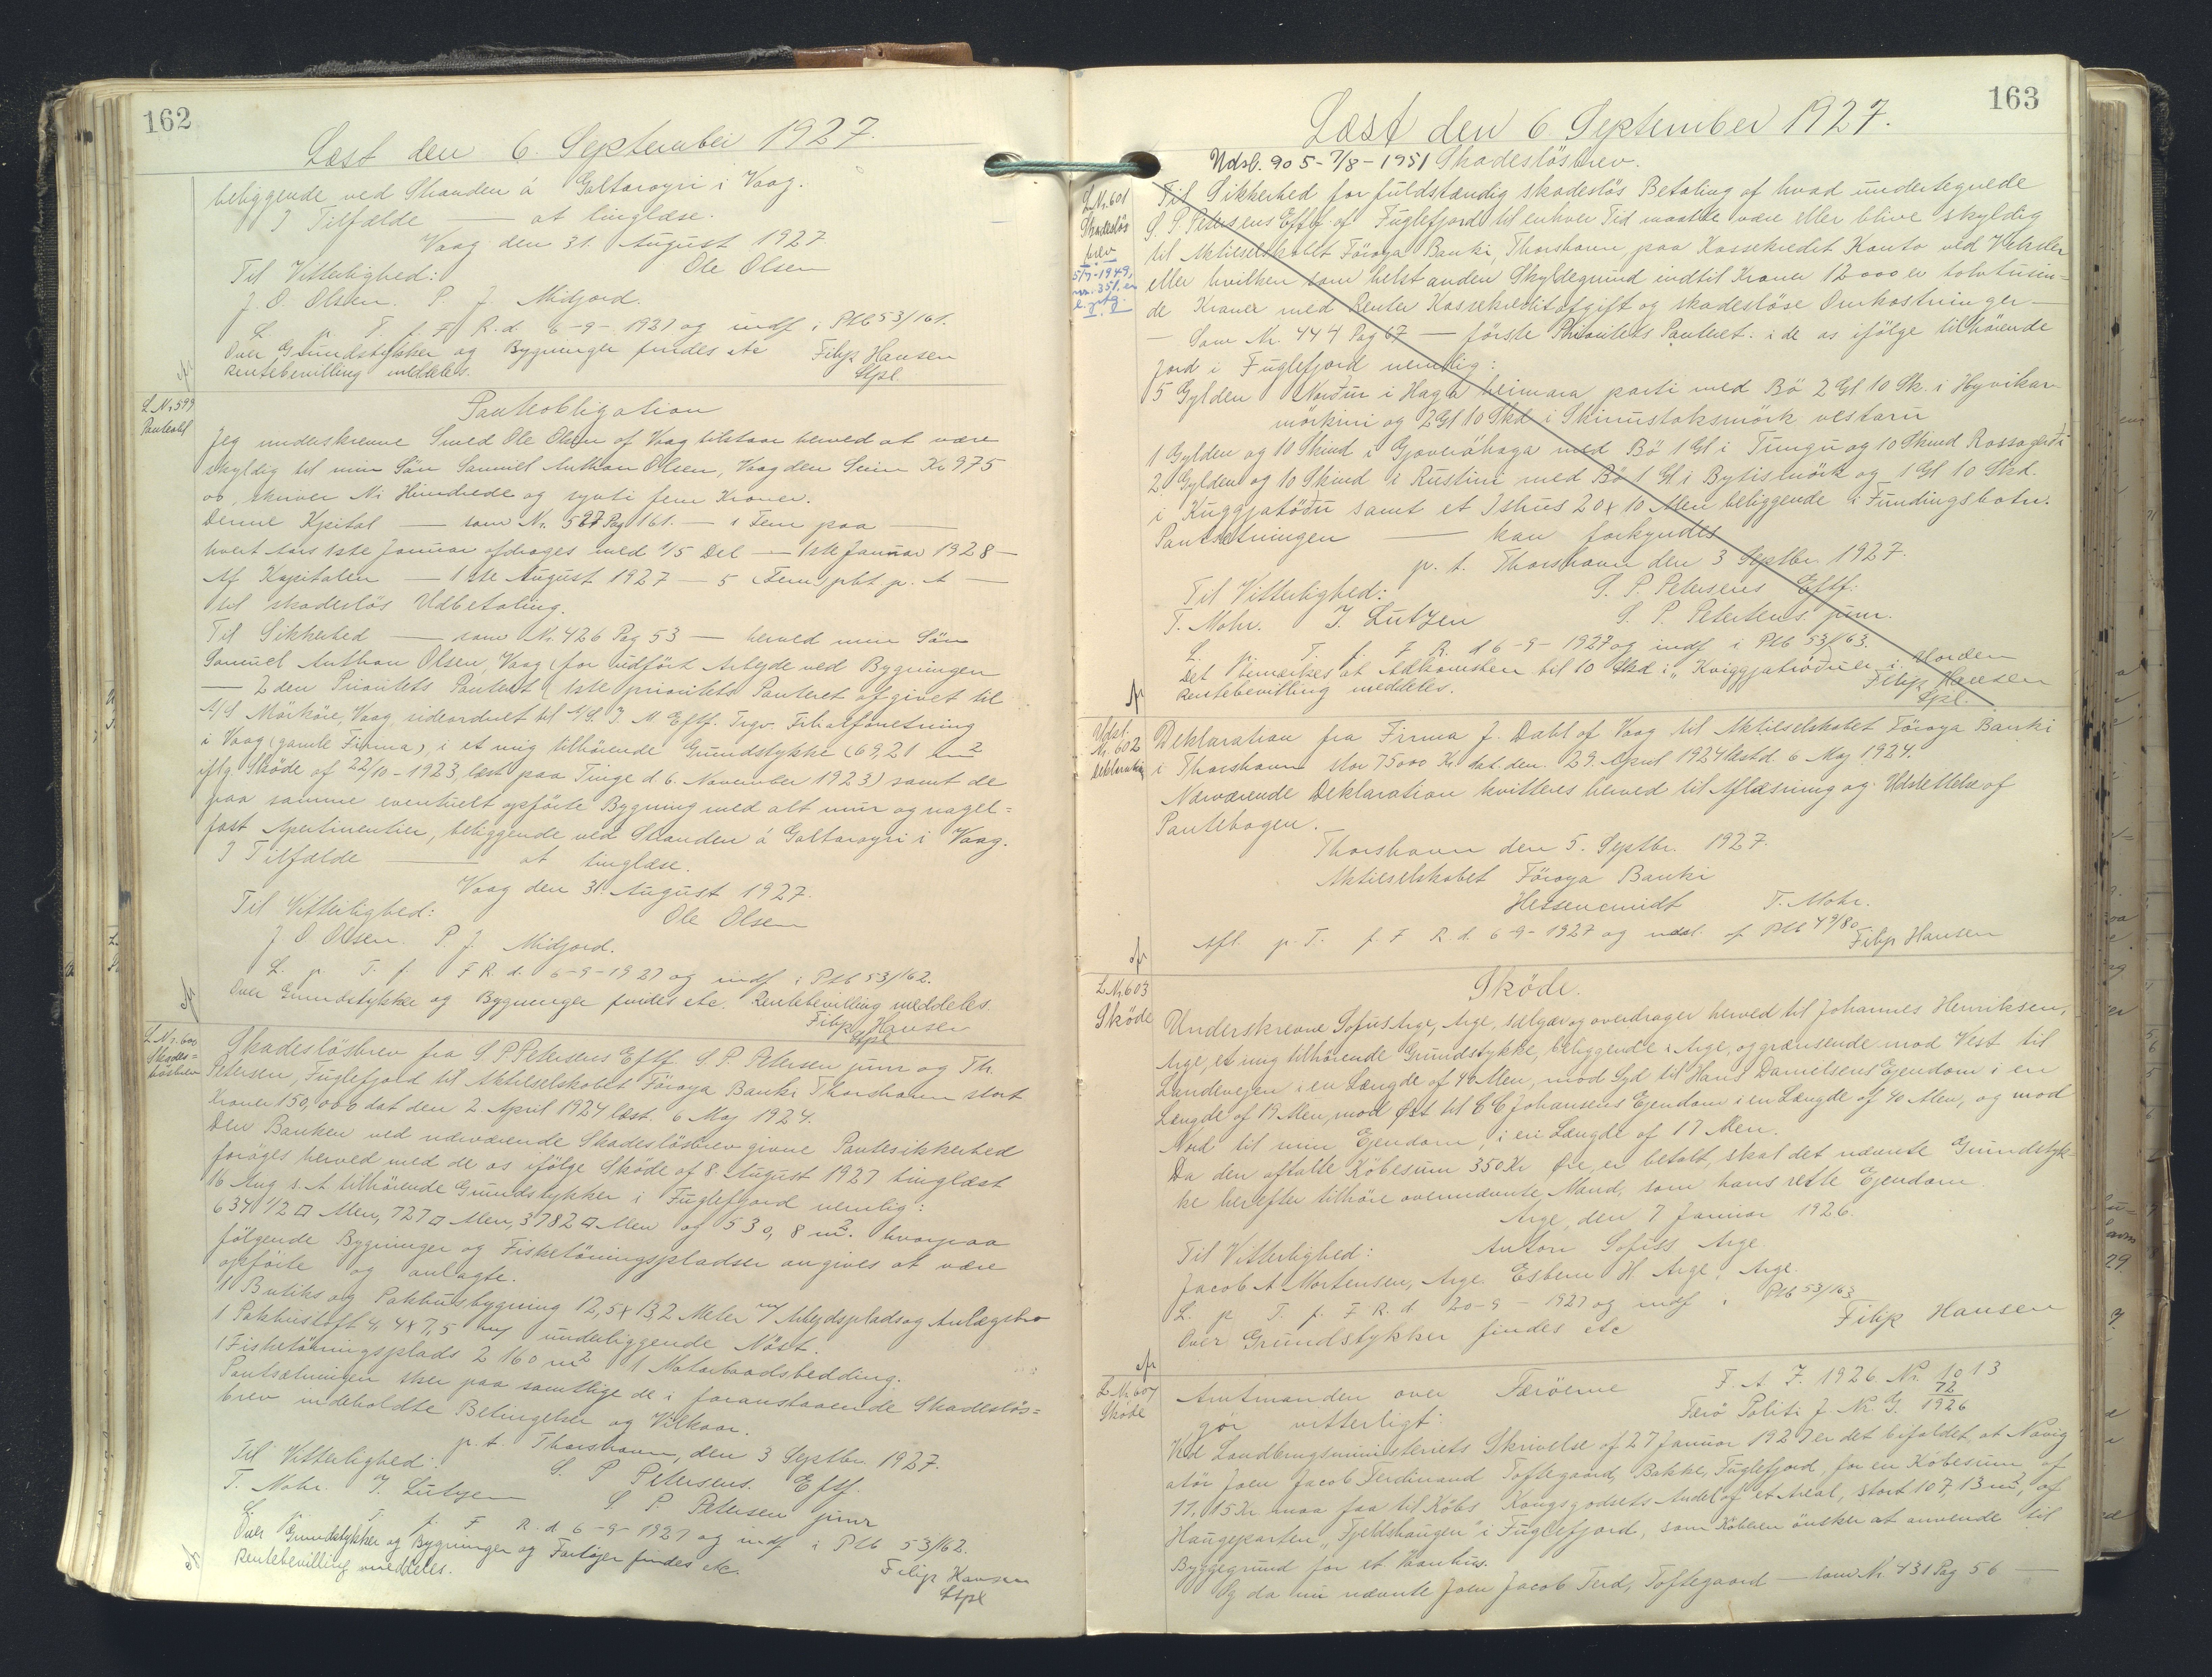 162
Læst den 6. September 1927.
beliggende ved Stranden á Galtaroyri i Vaag.
I Tilfælde — at tinglæse.
Vaag den 31. August 1927
Til Vitterlighed: Ole Olsen
J. O. Olsen. P. J. Midjord.
L. p. T. f. F. R. d. 6-9-1927 og indf. i Ptb 53/161.
Over Grundstykker og Bygninger findes etc Filip Hansen
Rentebevilling meddeles. Stpl.
L Nr 599
Panteobl
Panteobligation
Jeg underskrevne Smed Ole Olsen af Vaag tilstaar herved at være
skyldig til min Sön Samuel Anthon Olsen, Vaag den Sum Kr 975
oo, skriver Ni Hundrede og syvti fem Kroner.
Denne Kpital — som Nr. 597 Pag 161. — i Fem paa —
hvert Aars 1ste Januar afdrages med 1/5 Del — 1ste Januar 1928 —
Af Kapitalen — 1ste August 1927 — 5 (Fem) pkt p. A —
til skadeslös Udbetaling.
Til Sikkerhed — som Nr. 426 Pag 53 — herved min Sön
Samuel Anthon Olsen, Vaag (for udfört Arbejde ved Bygningen
— 2den Prioritets Panteret (1ste prioritets Panteret afgivet til
A/S Mörköre, Vaag sideordnet til A/S. J. M. Eftf. Trgv.
i Vaag (gamle Firma), i et mig tilhörende Grundstykke (69,21 m2
iflg. Sköde af 22/10-1923, læst paa Tinge d 6. November 1923) samt de
paa samme eventuelt opförte Bygning med alt mur og nagel-
fast Apertinentier, beliggende ved Stranden á Galtaroyri i Vaag.
I Tilfælde — at tinglæse.
Vaag den 31. August 1927.
Til Vitterlighed: Ole Olsen
J O. Olsen. P. J. Midjord.
L. p. T. f. F R. d. 6-9-1927 og indf i Ptb 53/162.
Over Grundstykke og Bygninger findes etc. Rentebevilling meddeles.
Filip Hansen
Stpl
L. Nr. 600
Skades=
lösbrev
Skadeslösbrev fra S. P Petersens Eftf. S. P. Petersen junr og Th.
Petersen, Fuglefjord til Aktieselskabet Föroya Banki Thorshavn stort
Kroner 150,000 dat den 2. April 1924 læst. 6 Maj 1924.
Den Banken ved nærværende Skadeslösbrev givne Pantesikkerhed
foröges herved med de os ifölge Sköde af 8. August 1927 tinglæst
16 Aug s. A. tilhörende Grundstykker i Fuglefjord nemlig:
634 1/2 □ Alen, 727 □ Alen, 3782 □ Alen og 530,8 m2. hvorpaa
fölgende Bygninger og Fisketörringspladser angives at være
opförte og anlagte.
1 Butiks og Pakhusbygning 12,5 x 13,2 Meter m/ Arbejdsplads og Anlægsbro
1 Pakhusloft 4,4 x 7,5 m/ underliggende Nöst.
1 Fisketörringsplads 2160 m2 1 Motorbaadsbedding.
Pantsætningen sker paa samtlige de i foranstaaende Skadeslös=
brev indeholdte Betingelser og Vilkaar.
p. t. Thorshavn, den 3 Septbr. 1927.
Til Vitterlighed: S. P Petersens. Eftf.
T. Mohr. J. Lützen S. P. Petersen junr
L. p. T. f. F. R. d. 6-9-1927 og indf i Ptb 53/162.
Over Grundstykker og Bygninger og Fartøjer findes etc. Filip Hansen
Rentebevilling meddeles. Stpl
163
Læst den 6 September 1927.
Udsl. 905-7/8-1951 Skadeslösbrev.
L. Nr. 601
Skadeslös
brev
5/7-1949,
nr. 351.
Til Sikkerhed for fuldstændig skadeslös Betaling af hvad undertegnede
S. P. Petersens Eftf. af Fuglefjord til enhver Tid maatte være eller blive skyldig
til Aktieselskabet Föroya Banki, Thorshavn, paa Kassekredit Konto ved Veksler
eller hvilken som helst anden Skyldegrund indtil Kroner 12000 er tolvtusin=
de Kroner med Renter Kassekreditafgift og skadeslöse Omkostninger —
— Som Nr. 444 Pag 67 — förste Prioritets Panteret: i de os ifölge tilhörende
Jord i Fuglefjord nemlig:
5 Gylden Nordur i Haga heimara parti med Bö 2 Gl 10 Sk. i Hyvikar
mörkini og 2 Gl 10 Skd i Skinustoksmörk vestaru
1 Gylden og 10 Skind i Gjoveráhaga med Bö 1 Gl i Tungu og 10 Skind Rossagerdi
2 Gylden og 10 Skind i Rustini med Bö 1 Gl i Bytismörk og 1 Gl 10 Skd.
i Kuggjatödu samt et Ishus 20 x 10 Alen beliggende i Fundingsbotn.
Pantsætningen — kan forkyndes
p. t. Thorshavn den 3 Septbr. 1927.
Til Vitterlighed: S. P. Petersens Eftf.
T. Mohr. J. Lützen S. P. Petersens. junr.
L. p. T. f. F. R. d 6-9-1927 og indf i Ptb 53/163.
Det bemærkes at Adkomsten til 10 Skd i "Kviggjatröðum" i Orden
Rentebevilling meddeles. Filip Hansen
Stpl.
Udsl.
Nr. 602
Deklaration
Deklaration fra Firma J. Dahl af Vaag til Aktieselskabet Föroya Banki
i Thorshavn stor 75000 Kr. dat. den. 29. April 1924 læst d. 6 Maj 1924.
Nærværende Deklaration kvitteres herved til Aflæsning og Udslettelse af
Pantebogen.
Thorshavn den 5. Septbr. 1927.
Aktieselskabet Föroya Banki
Hessencmidt T. Mohr.
Afl. p. T. f. F R. d. 6-9-1927 og udsl. af Ptb 49/80
Filip Hansen
L. Nr. 603
Sköde
Sköde.
Underskrevne Sofus Arge, Arge, sælger og overdrager herved til Johannes Henriksen,
Arge, et mig tilhörende Grundstykke, beliggende i Arge, og grænsende mod Vest til
Landevejen i en Længde af 40 Alen, mod Syd til Hans Danielsens Ejendom i en
Længde af 17 Alen, mod Øst til C C Johansens Ejendom i en Længde af 40 Alen, og mod
Nord til min Ejendom, i en Længde af 17 Alen.
Da den aftalte Köbesum 350 Kr Øre, er betalt, skal det nævnte Grundstyk=
ke herefter tilhöre ovennævnte Mand, som hans rette Ejendom.
Arge, den 7 Januar 1926.
Til Vitterlighed: Anton Sofuss Arge.
Jacob A Mortensen, Arge. Esbern H. Arge, Arge.
L. p. T. f. F R. d. 20-9-1927 og indf i Ptb 53/163
Over Grundstykker findes etc Filip Hansen
L. Nr 604
Sköde
Amtmanden over Færöerne F. A. J. 1926 Nr. 1013
gör vitterligt: Færö Politi J. Nr. G. 72/1926
Ved Landbrugsministeriets Skrivelse af 27 Januar 1927 er det bifaldet, at Navig
atör Joen Jacob Ferdinand Toftegaard, Bakke, Fuglefjord, for en Köbesum af
11,15 Kr. maa faa til Köbs Kongsgodsets Andel af et Areal, stort 107,13 m2, af
Haugeparten "Fjeldshaugen" i Fuglefjord, som Köberen önsker at anvende til
Byggegrund for et Vaanhus.
Og da nu nævnte Joen Jacob Ferd, Toftegaard — som Nr. 431 Pag 56 —